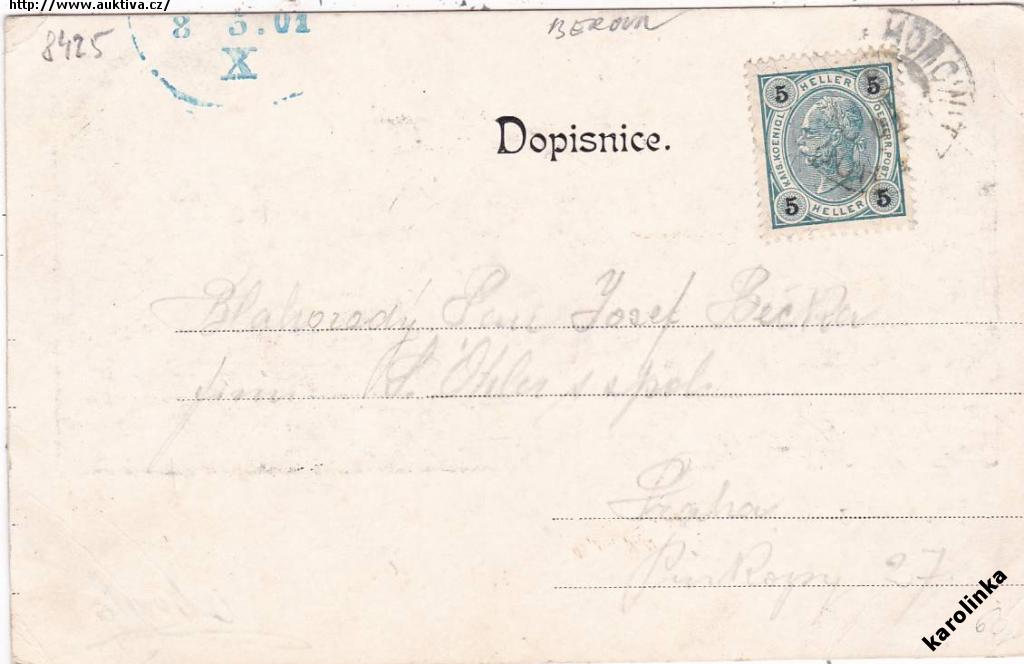 http://www.auktiva.cz/
8425
8 5.01
X
BEROUN
Dopisnice.
5 HELLER 5
KAIS. KOENIGL. OESTERR. POST.
5 HELLER 5
Blahorodý Pan Josef Bečka
spol.
Praha
27
karolinka